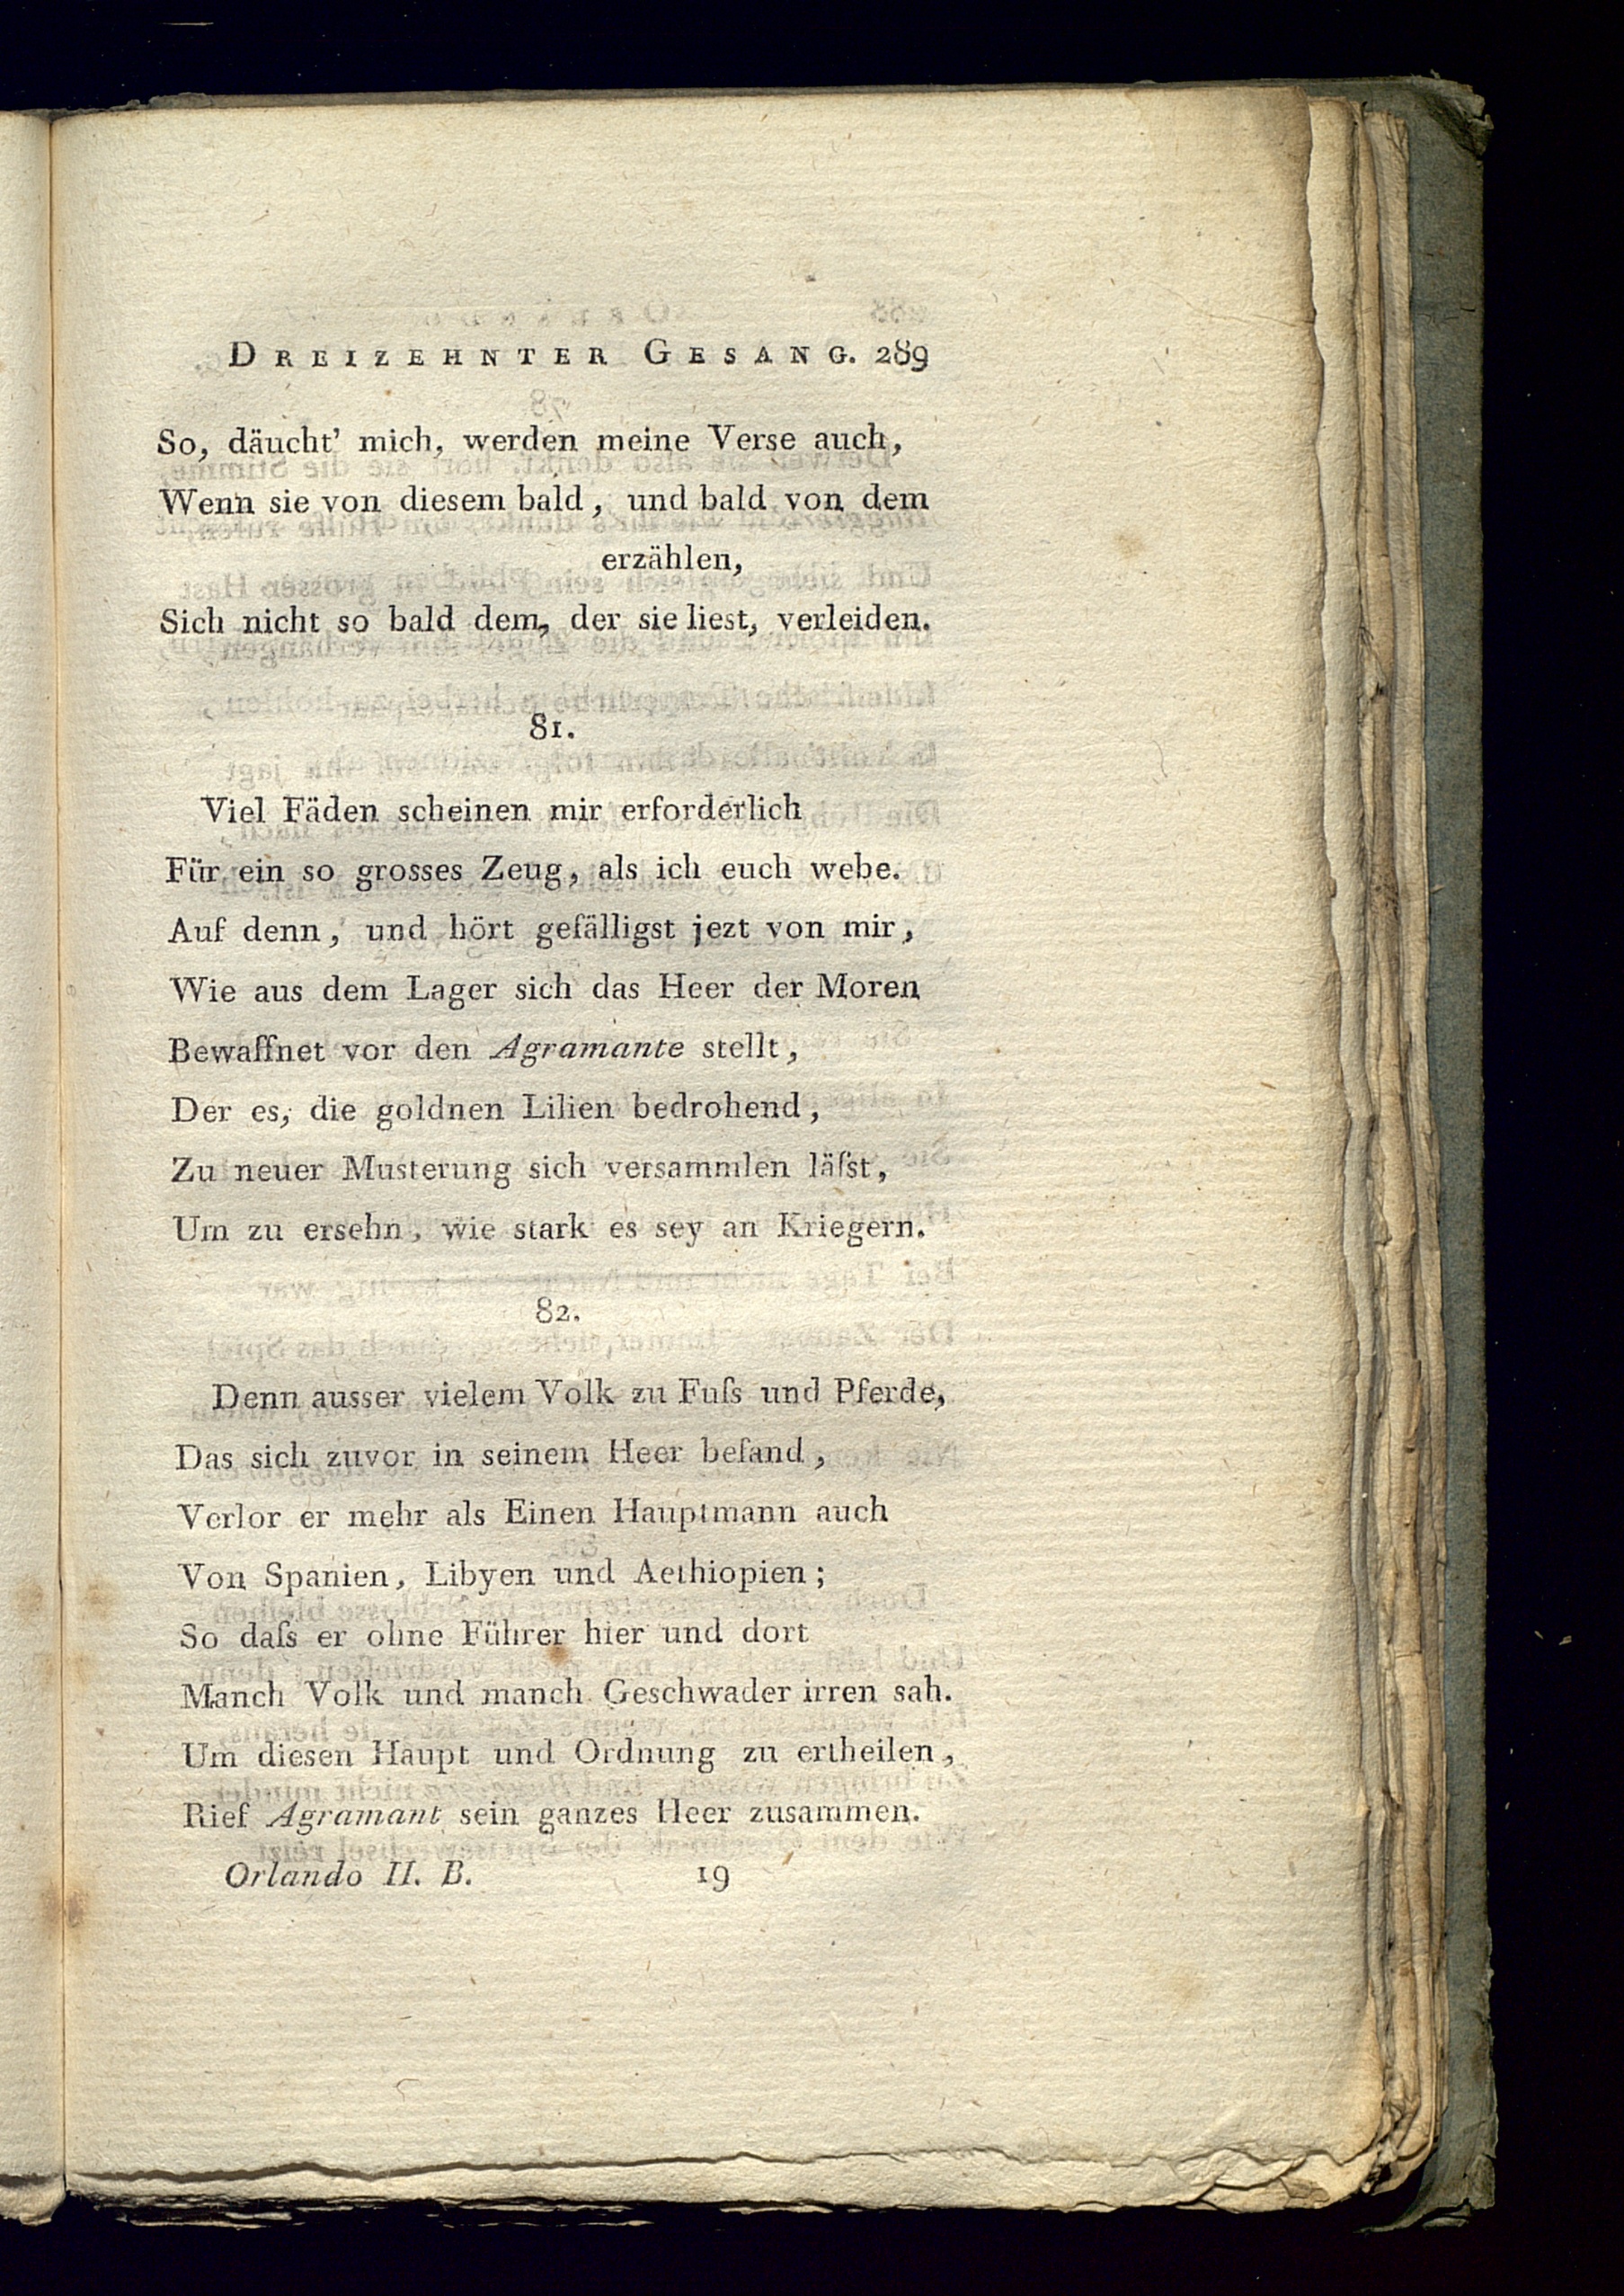 DREIZEHNTER GESANG. 289
So, däucht' mich, werden meine Verse auch,
Wenn sie von diesem bald, und bald von dem
erzählen,
Sich nicht so bald dem, der sie liest, verleiden.
81.
Viel Fäden scheinen mir erforderlich
Für ein so grosses Zeug, als ich euch webe.
Auf denn, und hört gefälligst jezt von mir,
Wie aus dem Lager sich das Heer der Moren
Bewaffnet vor den Agramante stellt,
Der es, die goldnen Lilien bedrohend,
Zu neuer Musterung sich versammlen läſst,
Um zu ersehn, wie stark es sey an Kriegern.
82.
Denn ausser vielem Volk zu Fuſs und Pferde,
Das sich zuvor in seinem Heer befand,
Verlor er mehr als Einen Hauptmann auch
Von Spanien, Libyen und Aethiopien;
So daſs er ohne Führer hier und dort
Manch Volk und manch Geschwader irren sah.
Um diesen Haupt und Ordnung zu ertheilen,
Rief Agramant sein ganzes Heer zusammen.
Orlando II. B. 19